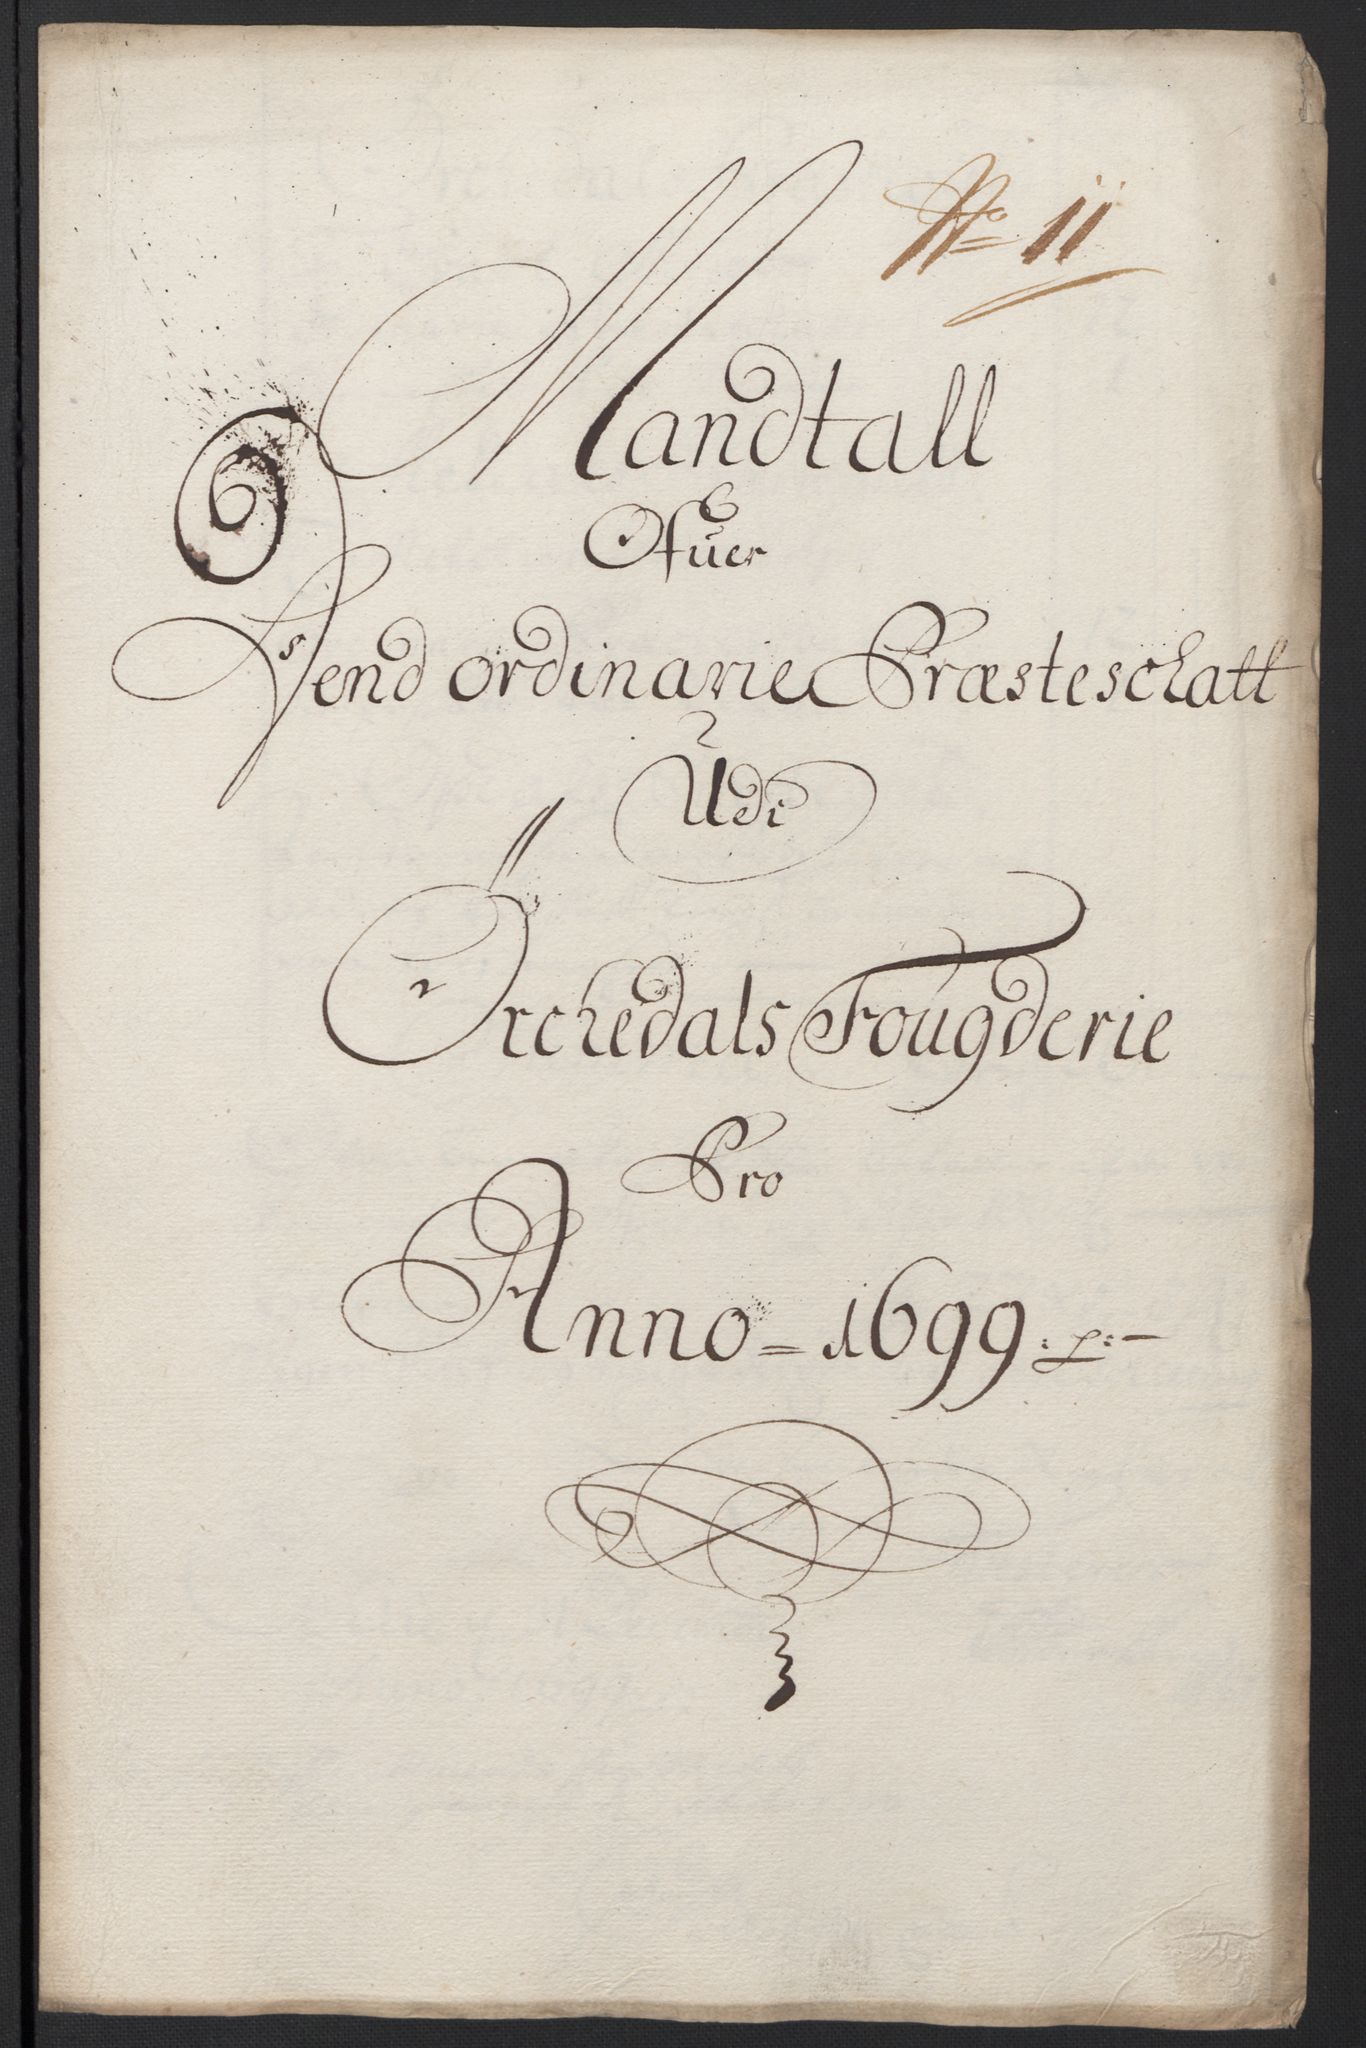 No 11
Mandtall
Ofuer
Dend ordinarie Præsteschatt
Udi
Örchedals Fougderie
Pro
Anno = 1699